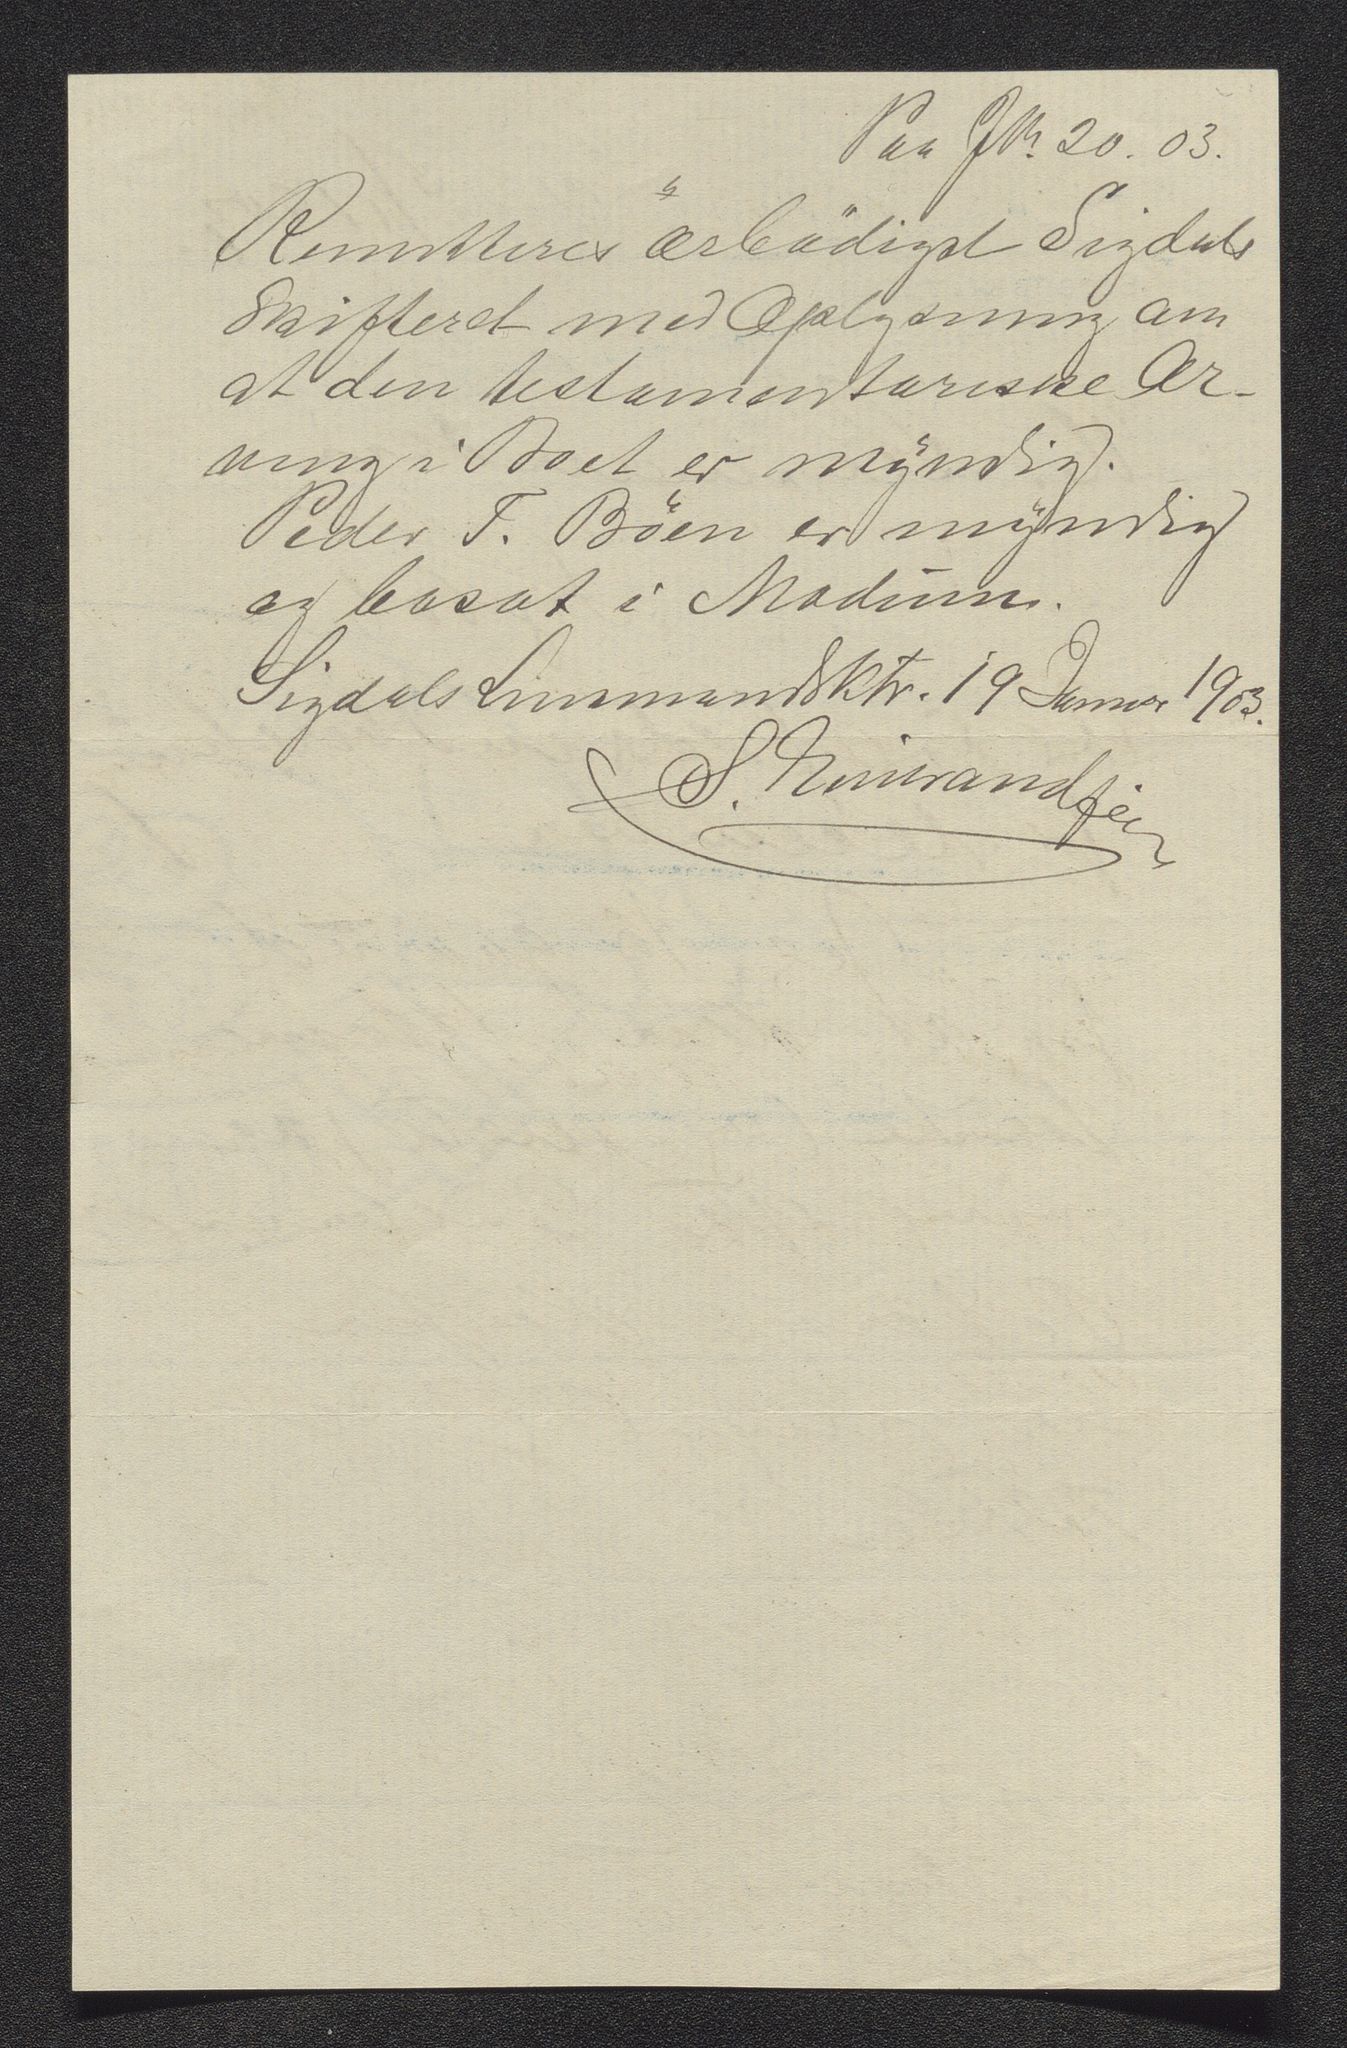 Paa JN. 20. 03.
Remitteres ærbödigst Sigdals
Skifteret med Oplysning om
at den testamentariske Ar-
ving i Boet er myndig.
Peder T. Böen er myndig
og bosat i Modum.
Sigdals Lensmandsktr. 19 Januar 1903.